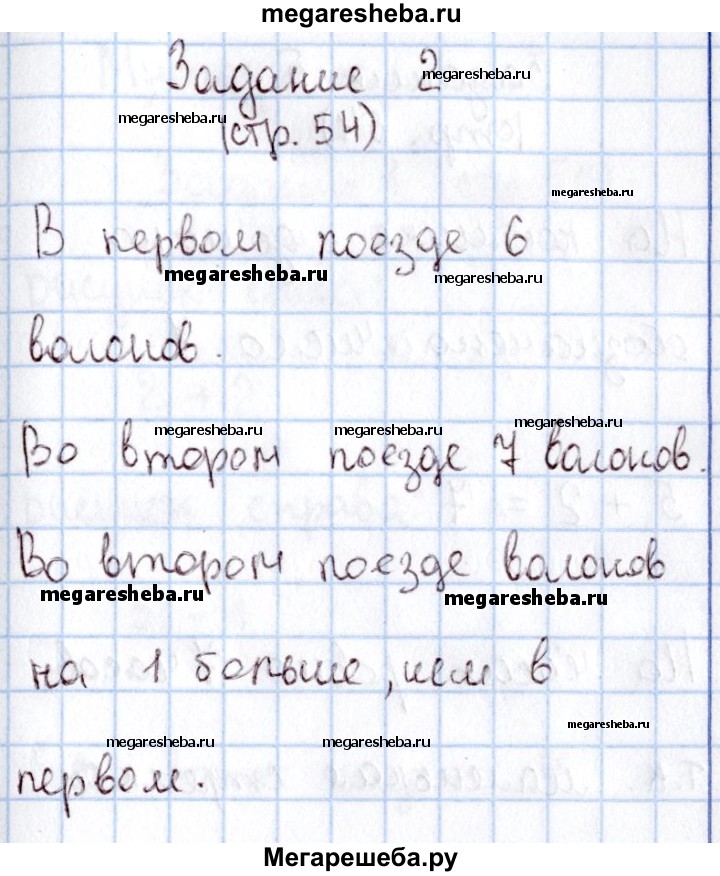 megaresheba.ru
Задание 2
megaresheba.ru
megaresheba.ru
(стр. 54)
megaresheba.ru
В первом поезде 6
megaresheba.ru
megaresheba.ru
вагонов.
megaresheba.ru
megaresheba.ru
megaresheba.ru
Во втором поезде 7 вагонов.
Во втором поезде вагонов
megaresheba.ru
megaresheba.ru
на 1 больше, чем в
megaresheba.ru
megaresheba.ru
megaresheba.ru
первом.
Мегарешеба.ру